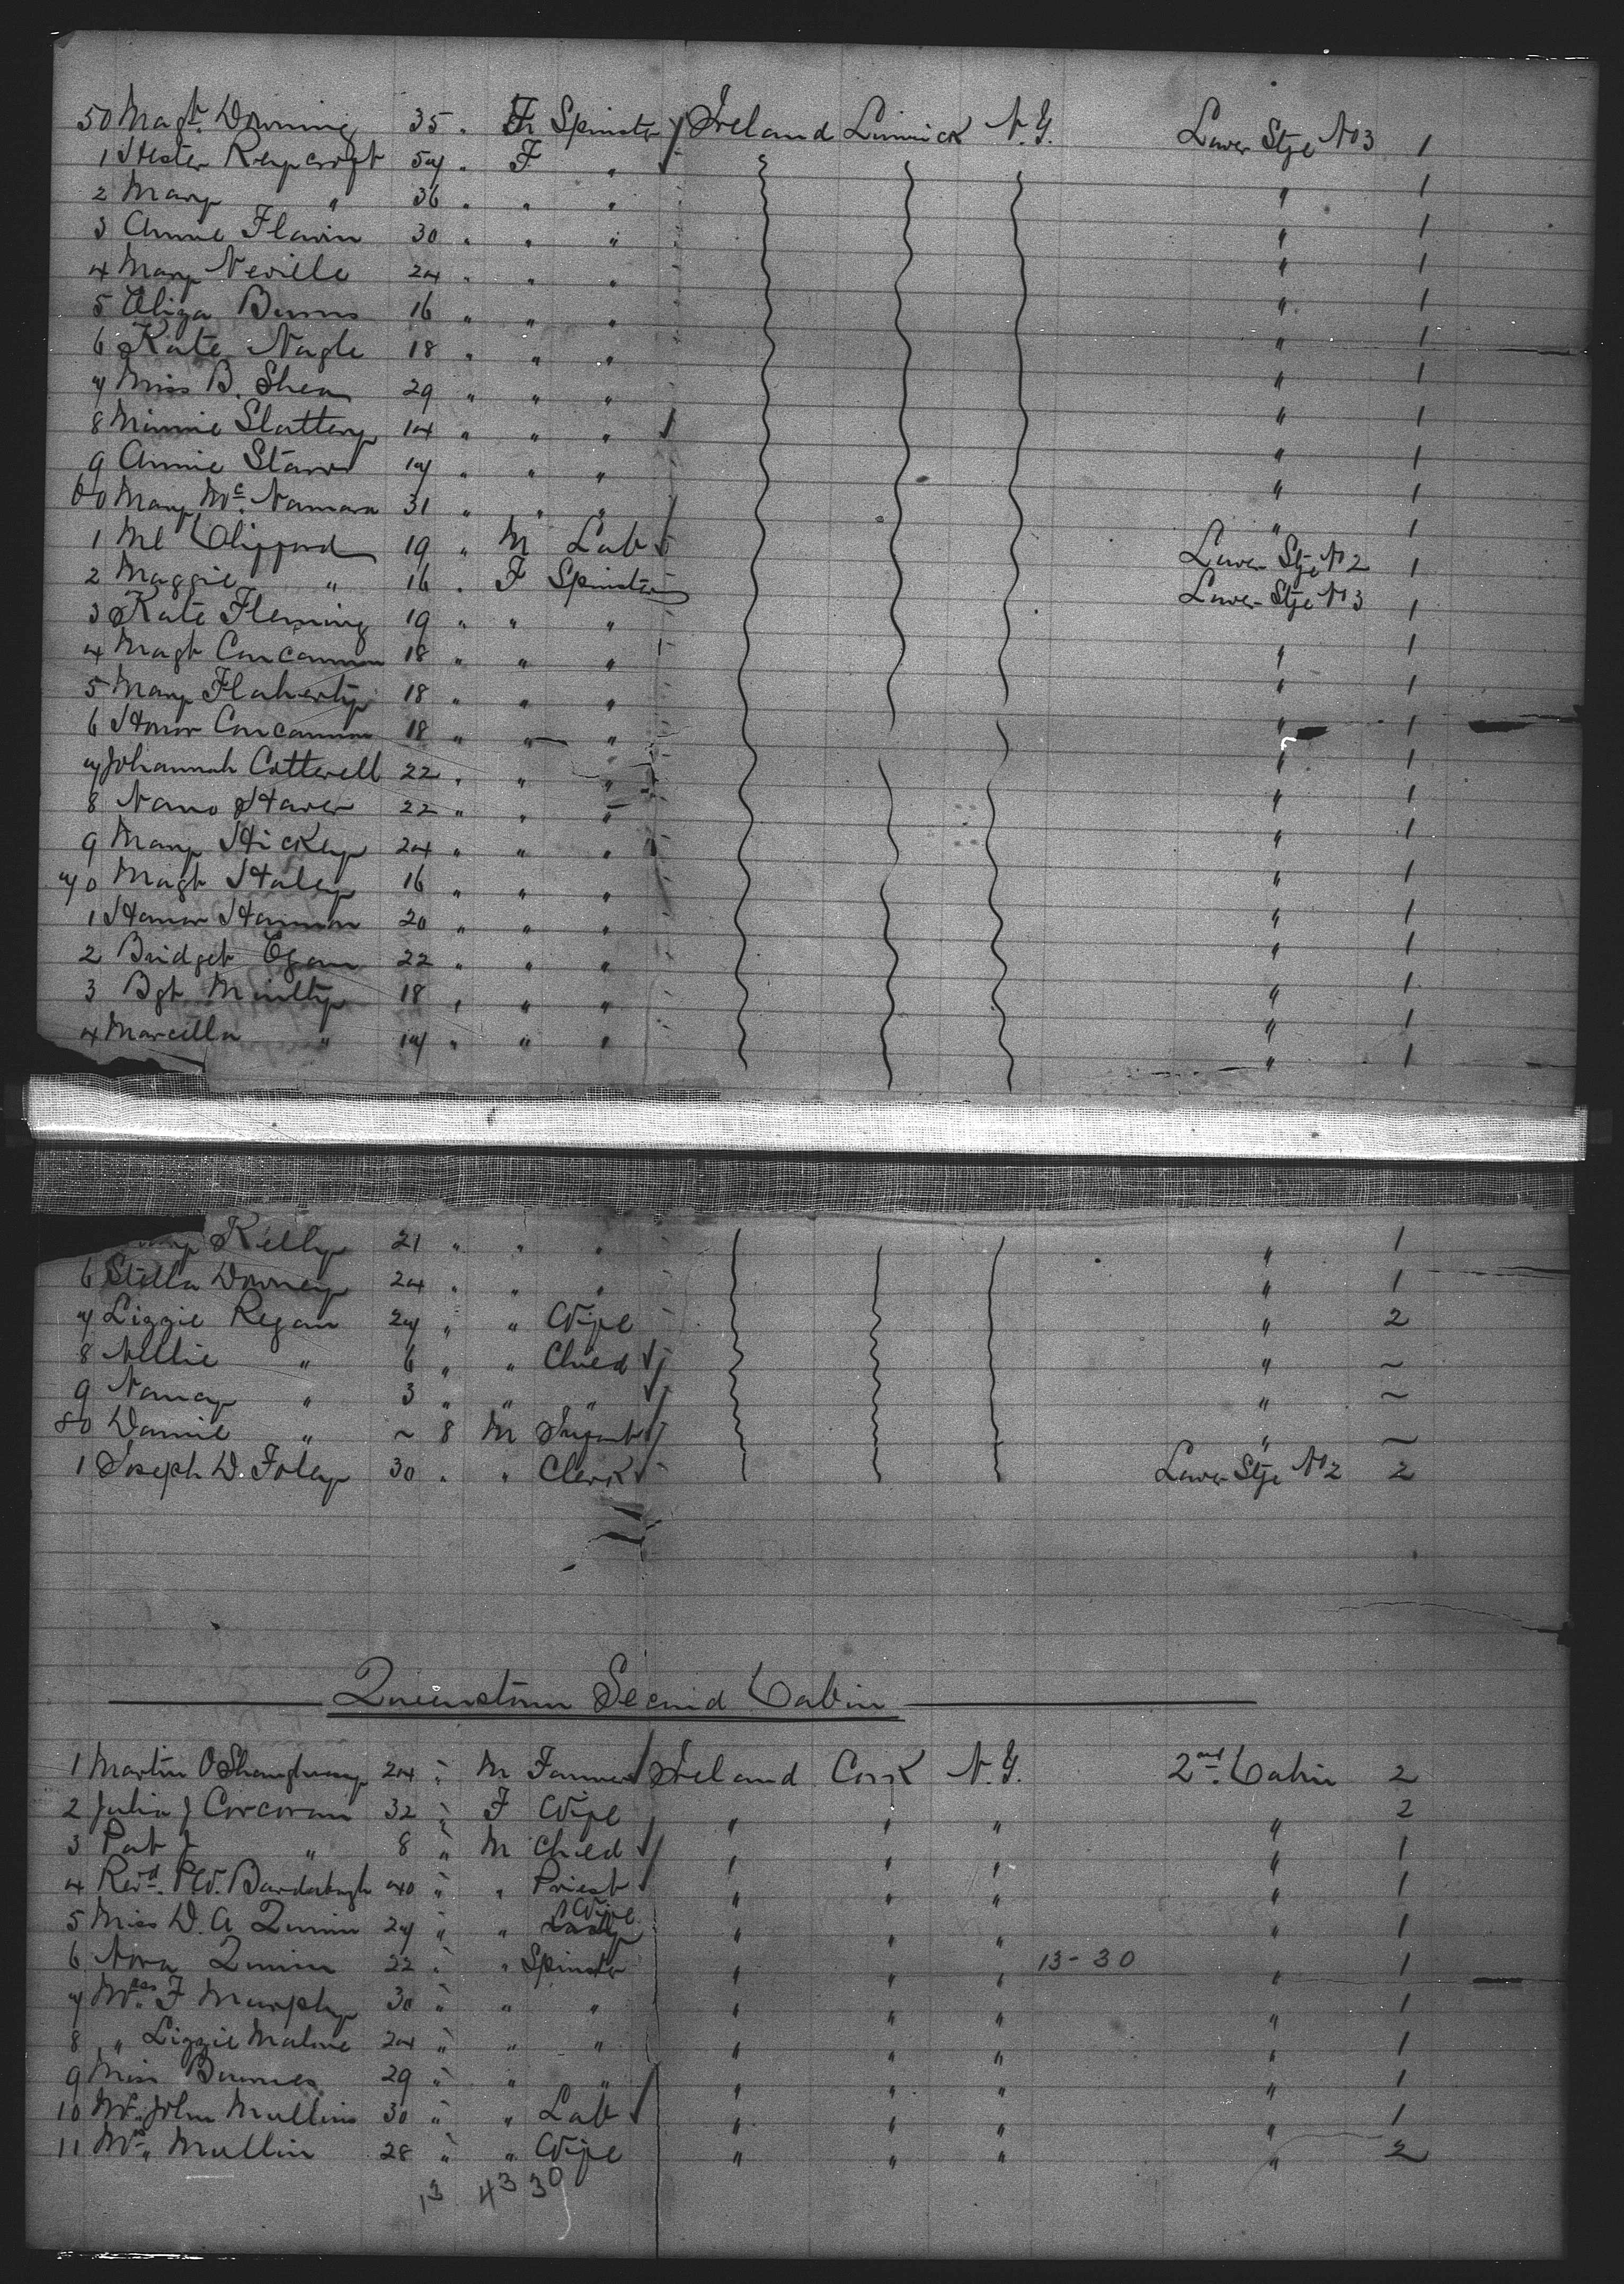 50 Magt. Downing 35 " F Spinster Ireland Limrick N.Y. Lower Stge No 3 1
1 Hester Reycroft 57 " F " " 1
2 Mary " 36 " " " " 1
3 Annie Flavin 30 " " " " 1
4 Mary Neville 24 " " " " 1
5 Eliza Burns 16 " " " " 1
6 Kate Nagle 18 " " " " 1
7 Miss B. Shea 29 " " " " 1
8 Minnie Slattery 14 " " " " 1
9 Annie 17 " " " " 1
60 Mary McNamara 31 " " " " 1
1 Ml Clifford 19 " M Lab Lower Stge No 2 1
2 Maggie " 16 " F Spinster Lower Stge No 3 1
3 Kate Fleming 19 " " " " 1
4 Magt Concannon 18 " " " " 1
5 Mary Flaherty 18 " " " " 1
6 Honor Concannon 18 " " " " 1
7 Johannah Cotterell 22 " " " " 1
8 Nano 22 " " " " 1
9 Mary Hickey 24 " " " " 1
70 Magt Haley 16 " " " " 1
1 Honor Hannon 20 " " " " 1
2 Bridget Egan 22 " " " " 1
3 Bgt Minilty 18 " " " " 1
4 Marcella " 17 " " " " 1
Kelly 21 " " " " 1
6 Stella Downey 24 " " " " 1
7 Lizzie Regan 27 " " Wife " 2
8 Nellie " 6 " " Child " ~
9 Nancy " 3 " " " " ~
80 Dannie " ~ 8 M Infant " ~
1 Joseph D. Foley 30 " " Clerk Lower Stge No 2 2
Queenstown Second Cabin
1 Martin OShaughnessy 24 " M Farmer Ireland Cork N.Y. 2nd. Cabin 2
2 Julia J Corcoran 32 " F Wife " " " " 2
3 Pat J " 8 " M Child " " " " 1
4 Revd. P.W. 40 " " Priest " " " " 1
5 Miss D. A Quinn 27 " " Wife " " " " 1
6 Nora Quinn 22 " " Spinster " " " 13-30 " 1
7 Mrs. F Murphy 30 " " " " " " " 1
8 " Lizzie Malone 24 " " " " " " " 1
9 Miss 29 " " " " " " " 1
10 Mr. John Mullins 30 " " Lab " " " " 1
11 Mrs. Mullin 28 " " Wife " " " " 2
13 43 39